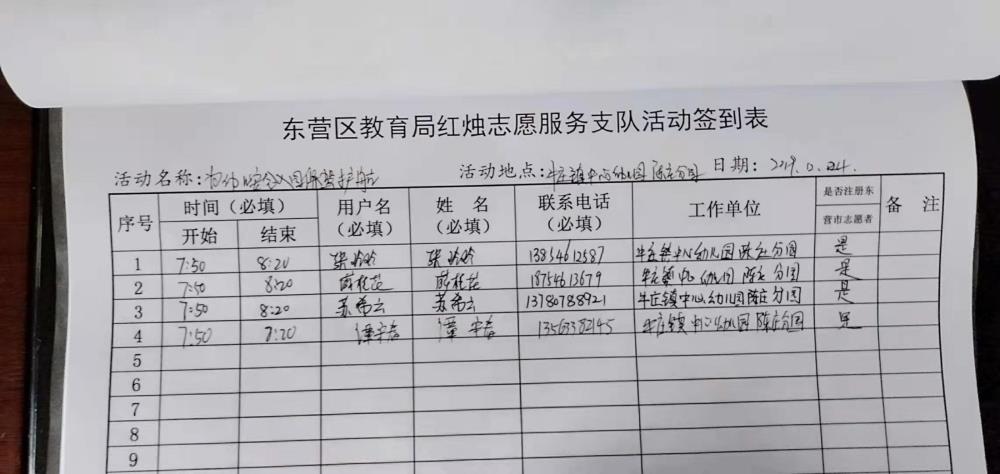 东营区教育局红烛志愿服务支队活动签到表
活动名称：为幼儿安全入园保驾护航 活动地点：牛庄镇中心幼儿园陈庄分园 日期：2019.
序号 时间（必填） 用户名（必填） 姓 名（必填） 联系电话（必填） 工作单位 是否注册东营市志愿者 备 注
开始 结束
1 7:50 8:20 张玲玲 张玲玲 13854612587 牛庄镇中心幼儿园陈庄分园 是
2 7:50 8:20 18754613679 牛庄镇中心幼儿园陈庄分园 是
3 7:50 8:20 苏希云 苏希云 13780788921 牛庄镇中心幼儿园陈庄分园 是
4 7:50 8:20 谭 谭 13563382145 牛庄镇中心幼儿园陈庄分园 是
5
6
7
8
9